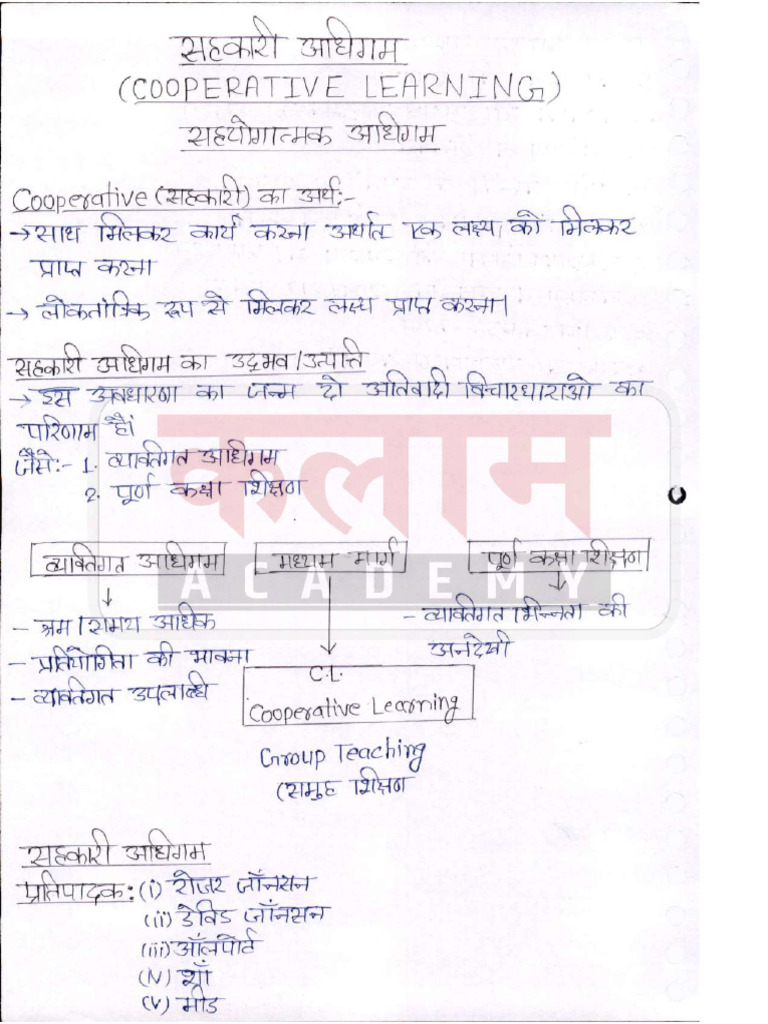 सहकारी अधिगम
(COOPERATIVE LEARNING)
सहयोगात्मक अधिगम
Cooperative (सहकारी) का अर्थ:-
→ साथ मिलकर कार्य करना अर्थात एक लक्ष्य को मिलकर
प्राप्त करना
→ लोकतांत्रिक रूप से मिलकर लक्ष्य प्राप्त करना।
सहकारी अधिगम का उद्भव/उत्पत्ति
→ इस अवधारणा का जन्म दो अतिवादी विचारधाराओ का
परिणाम है।
जैसे:- 1. व्यक्तिगत अधिगम
2. पूर्ण कक्षा शिक्षण
व्यक्तिगत अधिगम मध्यम मार्ग पूर्ण कक्षा शिक्षण
- श्रम/समय अधिक
- व्यक्तिगत भिन्नता की
अनदेखी
- प्रतियोगिता की भावना
- व्यक्तिगत उपलब्धि
C.L.
Cooperative Learning
Group Teaching
(समुह शिक्षण
सहकारी अधिगम
प्रतिपादक: (i) रोजर जॉनसन
(ii) डेविड जॉनसन
(iii) ऑलपोर्ट
(iv) शॉ
(v) मीड
कलाम
ACADEMY